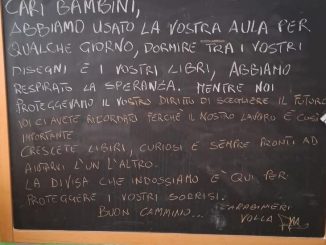 CARI BAMBINI,
ABBIAMO USATO LA VOSTRA AULA PER
QUALCHE GIORNO, DORMIRE TRA I VOSTRI
DISEGNI E I VOSTRI LIBRI, ABBIAMO
RESPIRATO LA SPERANZA. MENTRE NOI
PROTEGGEVAMO IL VOSTRO DIRITTO DI SCEGLIERE IL FUTURO
VOI CI AVETE RICORDATO PERCHÉ IL NOSTRO LAVORO È COSÌ
IMPORTANTE.
CRESCETE LIBERI, CURIOSI E SEMPRE PRONTI AD
AIUTARVI L'UN L'ALTRO.
LA DIVISA CHE INDOSSIAMO È QUI PER
PROTEGGERE I VOSTRI SORRISI.
BUON CAMMINO... I CARABINIERI
VOLLA